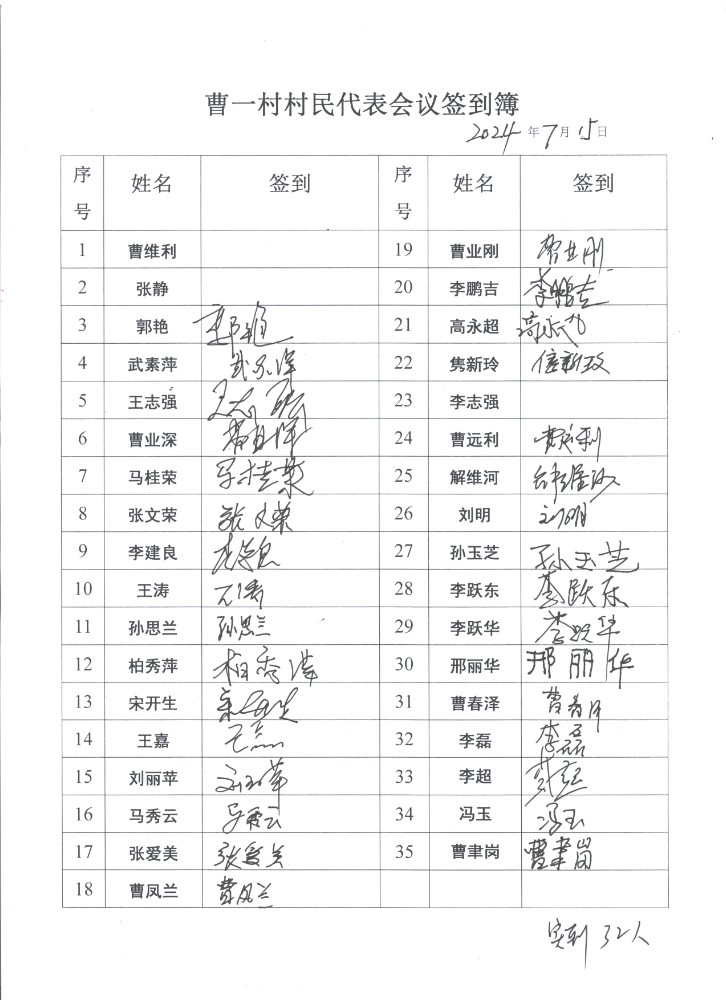 曹一村村民代表会议签到簿
2024年7月15日
序号 姓名 签到 序号 姓名 签到
1 曹维利 19 曹业刚 曹业刚
2 张静 20 李鹏吉 李鹏吉
3 郭艳 郭艳 21 高永超 高永超
4 武素萍 武素萍 22 隽新玲 信新玫
5 王志强 王志强 23 李志强
6 曹业深 曹业深 24 曹远利 曹远利
7 马桂荣 马桂荣 25 解维河 解维河
8 张文荣 张文荣 26 刘明 刘明
9 李建良 李建良 27 孙玉芝 孙玉芝
10 王涛 王涛 28 李跃东 李跃东
11 孙思兰 孙思兰 29 李跃华 李跃华
12 柏秀萍 柏秀萍 30 邢丽华 邢丽华
13 宋开生 宋开生 31 曹春泽 曹春泽
14 王嘉 王嘉 32 李磊 李磊
15 刘丽苹 刘丽苹 33 李超 李超
16 马秀云 马秀云 34 冯玉 冯玉
17 张爱美 张爱美 35 曹聿岗 曹聿岗
18 曹凤兰 曹凤兰
实到32人